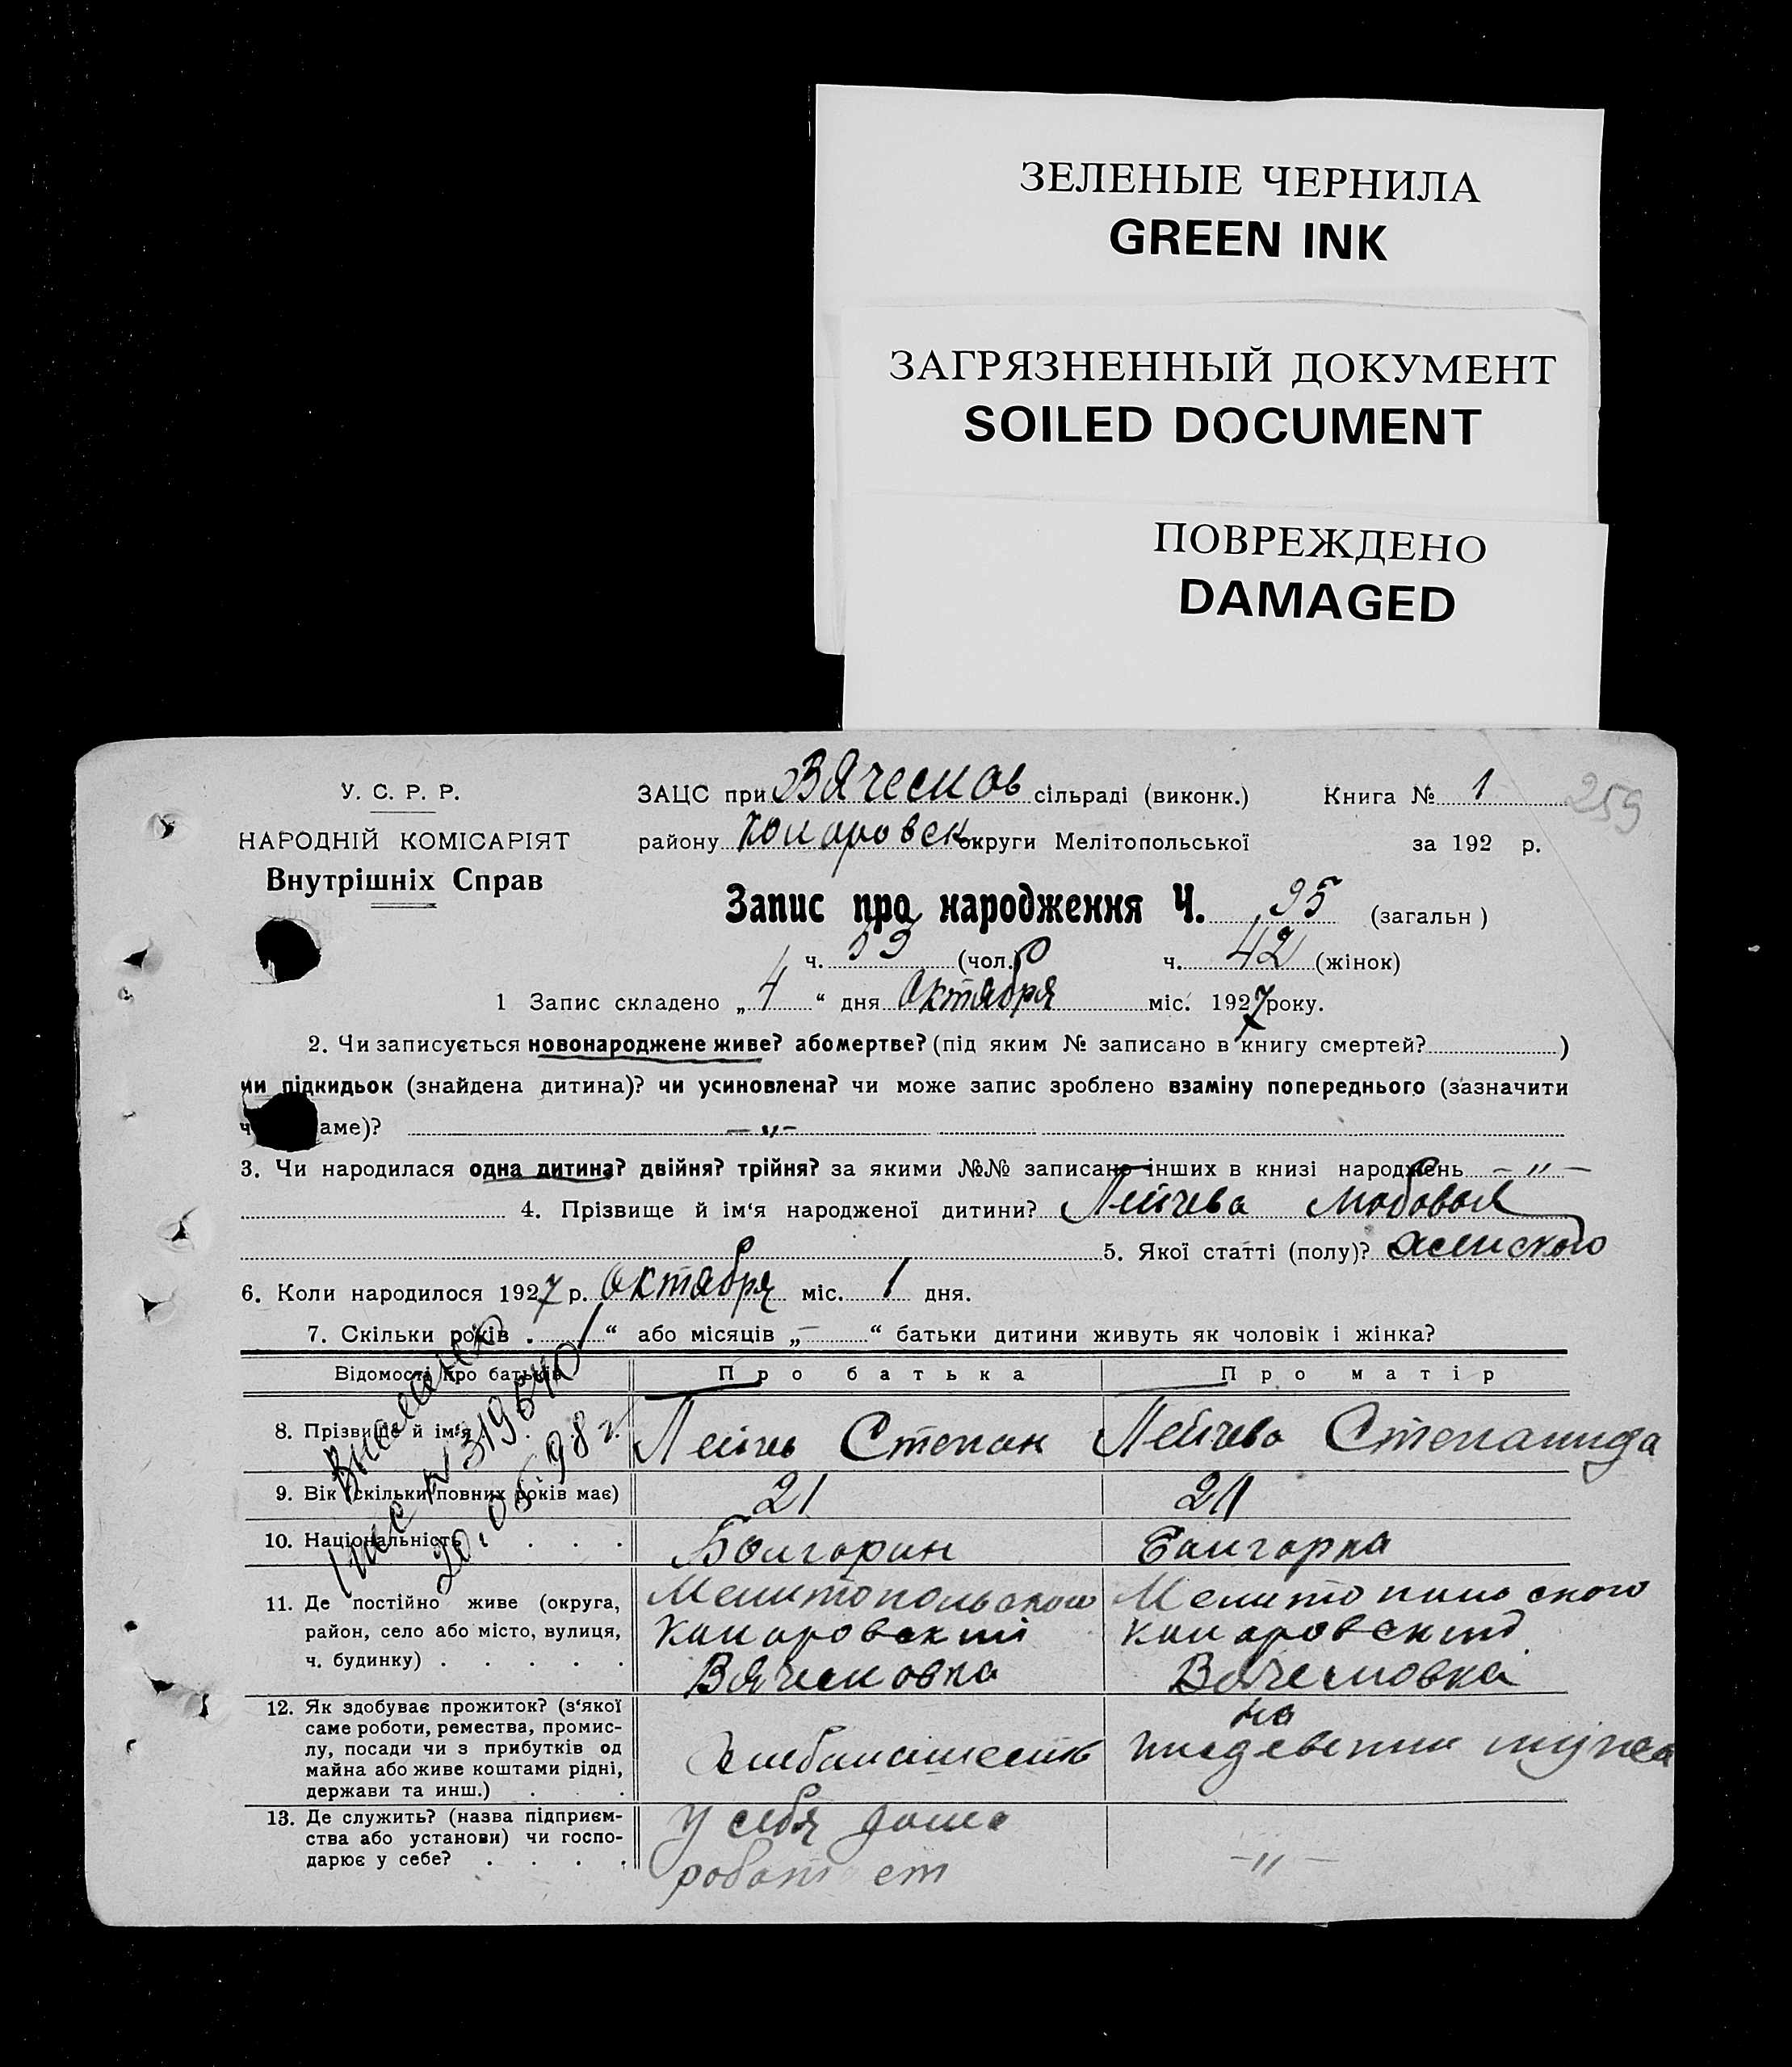 ЗЕЛЕНЫЕ ЧЕРНИЛА
GREEN INK
ЗАГРЯЗНЕННЫЙ ДОКУМЕНТ
SOILED DOCUMENT
ПОВРЕЖДЕНО
DAMAGED
У. С. Р. Р.
НАРОДНІЙ КОМІСАРІЯТ
Внутрішніх Справ
ЗАЦС при Вячеслов сільраді (виконк.) Книга № 1 259
району Коларовск округи Мелітопольської за 192 р.
Запис про народження Ч. 95 (загальн)
ч. 53 (чол.) ч. 42 (жінок)
1 Запис складено „4“ дня Октября міс. 1927 року.
2. Чи записується новонароджене живе? або мертве? (під яким № записано в книгу смертей? )
чи підкидьок (знайдена дитина)? чи усиновлена? чи може запис зроблено взаміну попереднього (зазначити
аме)? — „ —
3. Чи народилася одна дитина? двійня? трійня? за якими №№ записано інших в книзі народжень — „ —
4. Прізвище й ім‘я народженої дитини? Пейчева Любовь
5. Якої статті (полу)? женского
6. Коли народилося 1927 р. Октября міс. 1 дня.
7. Скільки років „1“ або місяців „—“ батьки дитини живуть як чоловік і жінка?
Відомості про батьків
Про батька
Про матір
8. Прізвище й ім‘я
Пейчев Степан
Пейчева Степанида
9. Вік (скільки повних років має)
21
21
10. Національність
Болгарин
Болгарка
11. Де постійно живе (округа,
район, село або місто, вулиця,
ч. будинку)
Мелитопольского
Коларовский
Вячесловка
Мелитопольского
Коларовский
Вячесловка
12. Як здобуває прожиток? (з‘якої
саме роботи, ремества, промис-
лу, посади чи з прибутків од
майна або живе коштами рідні,
держави та инш.)
Хлебопашеств
на
иждевении мужа
13. Де служить? (назва підприєм-
ства або установи) чи госпо-
дарює у себе?
У себя дома
работает
— „ —
20.05.98 г.